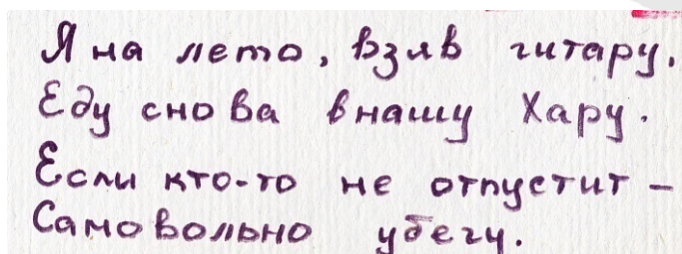 Я на лето, взяв гитару,
Еду снова в нашу Хару.
Если кто-то не отпустит –
Самовольно убегу.